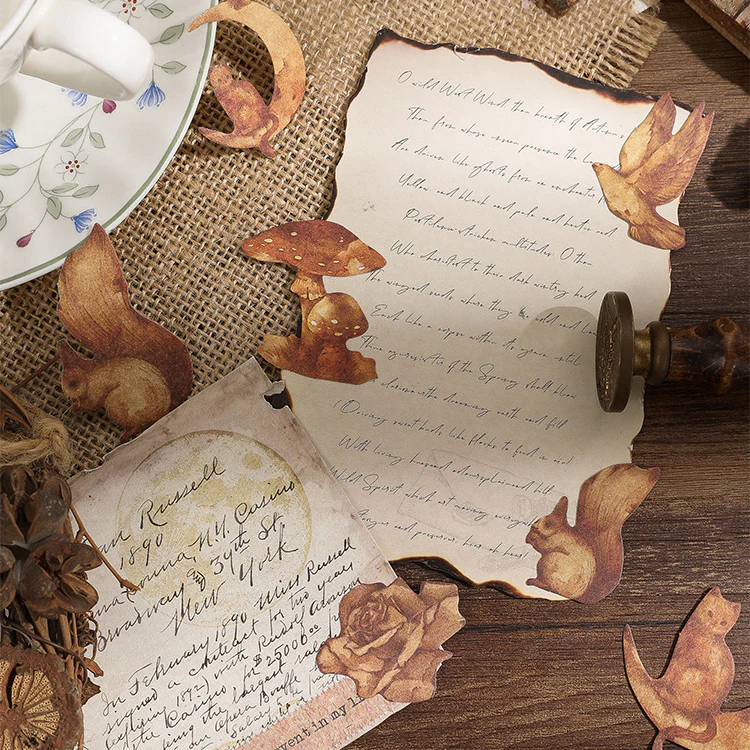 O wild West Wind, thou breath of Autumn's
Thou from whose unseen presence the lea
Are driven like ghosts from an enchanter
Yellow and black and pale and hectic red
Pestilence-stricken multitudes: O thou
Who chariotest to their dark wintry bed
The winged seeds, where they lie cold and low
Each like a corpse within its grave, until
Thine azure sister of the Spring shall blow
clarion o'er the dreaming earth and fill
(Driving sweet buds like flocks to feed in air)
With living hues and odours plain and hill:
Wild Spirit, which art moving everywhere
Destroyer and preserver; hear, oh hear!
Russell
1890
Donna, N.Y. Casino
Broadway & 39th St
New York
In February 1890 Miss Russell
signed a contract for two years
1892) with Rudolf Aronson
the Casino for $25000.00
being the largest salary
an Opera Bouffe
Salary
event in my li